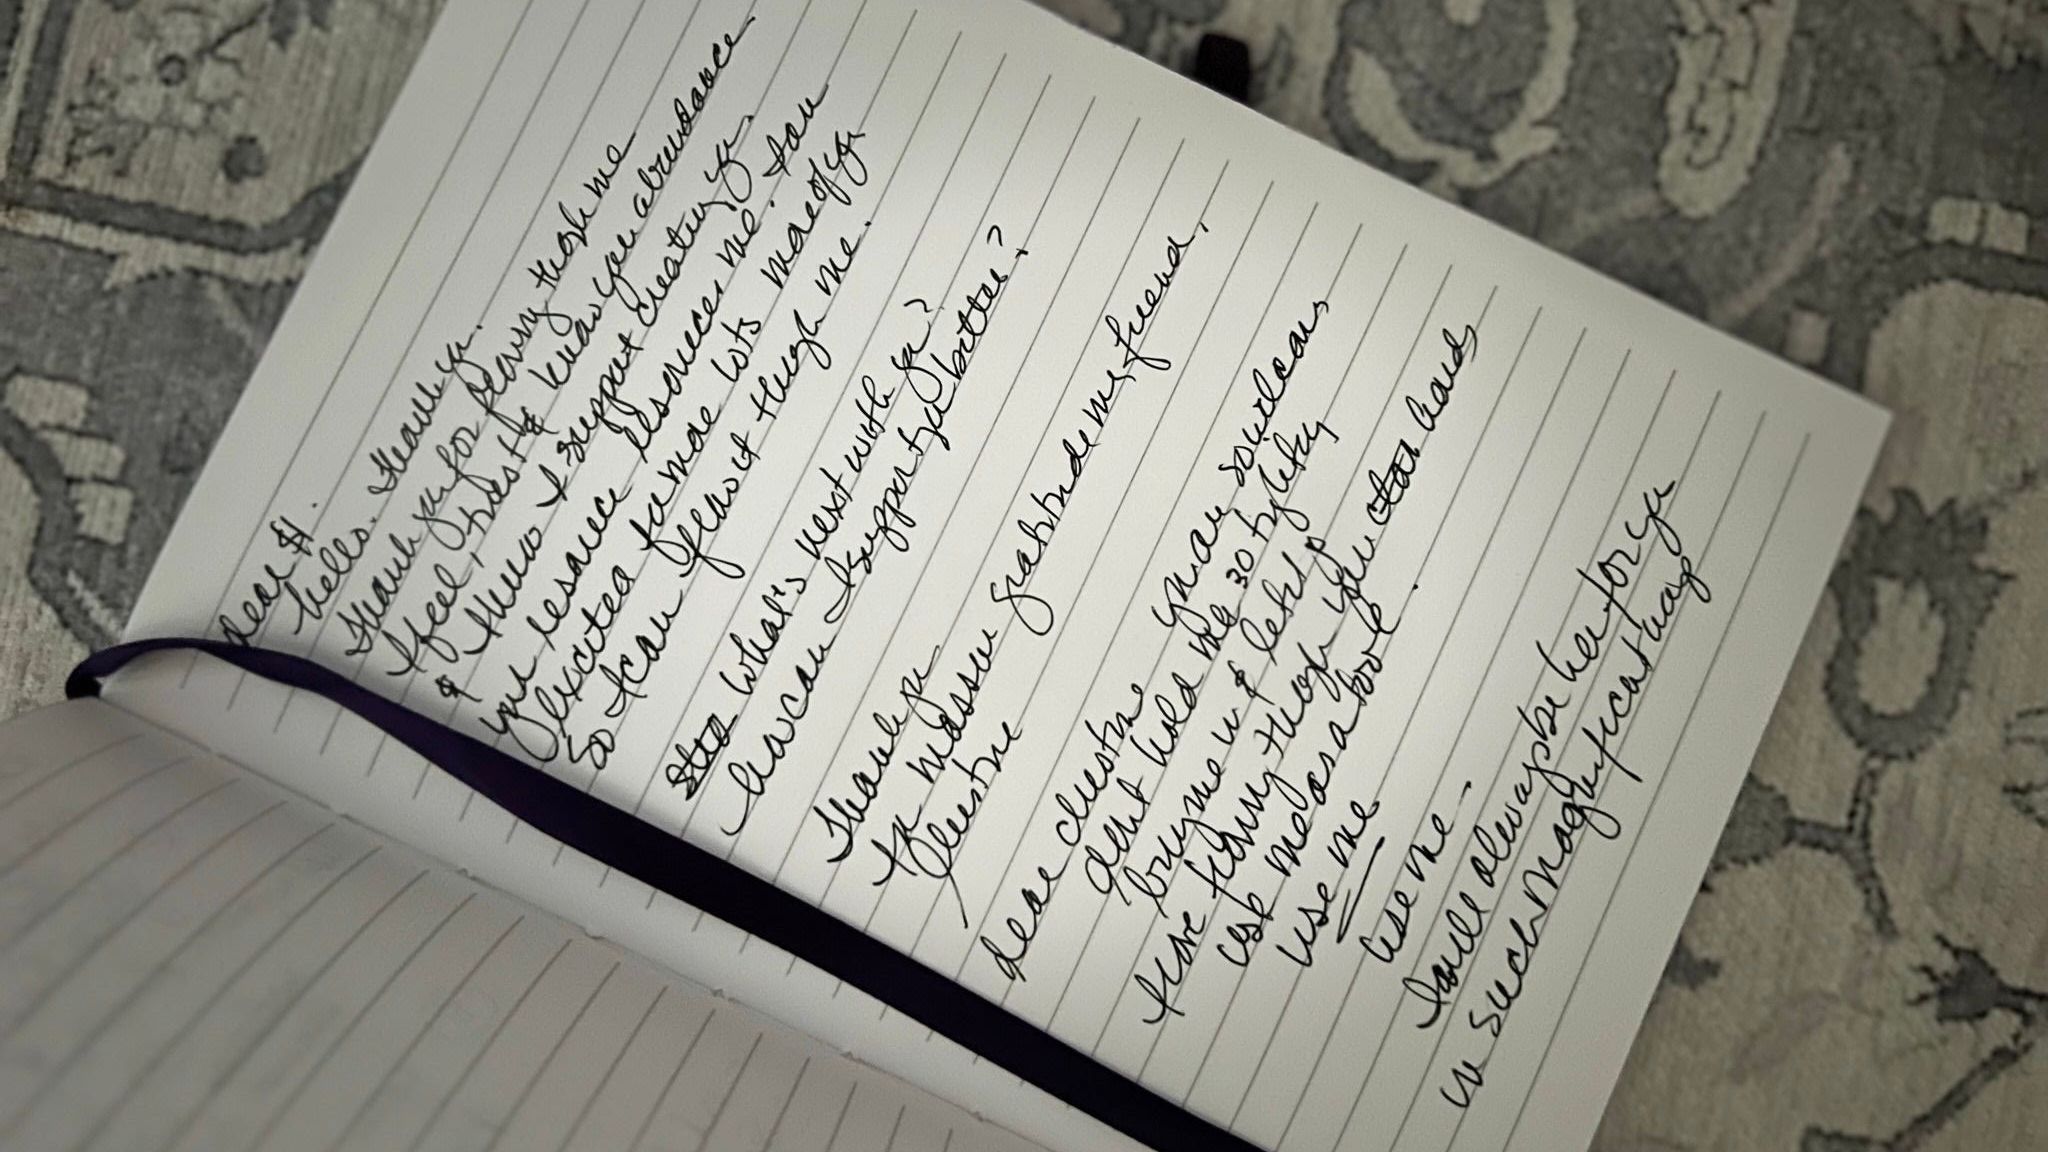 Dear $$.
hello. Thank you.
Thank you for flowing through me
I feel, trust & know your abundance
& I know I support creating you.
your resource resources me. I am
excited for more lots more of you
so I can flow it through me.
What's next with you?
how can I support you better?
Thank you
for massive gratitude my friend.
Christine
Dear Christine
Don't hold me so tightly
bring me in & let
love flowing through your hands
use me as a tool.
use me
use me.
I will always be here for you
in such magnificent ways